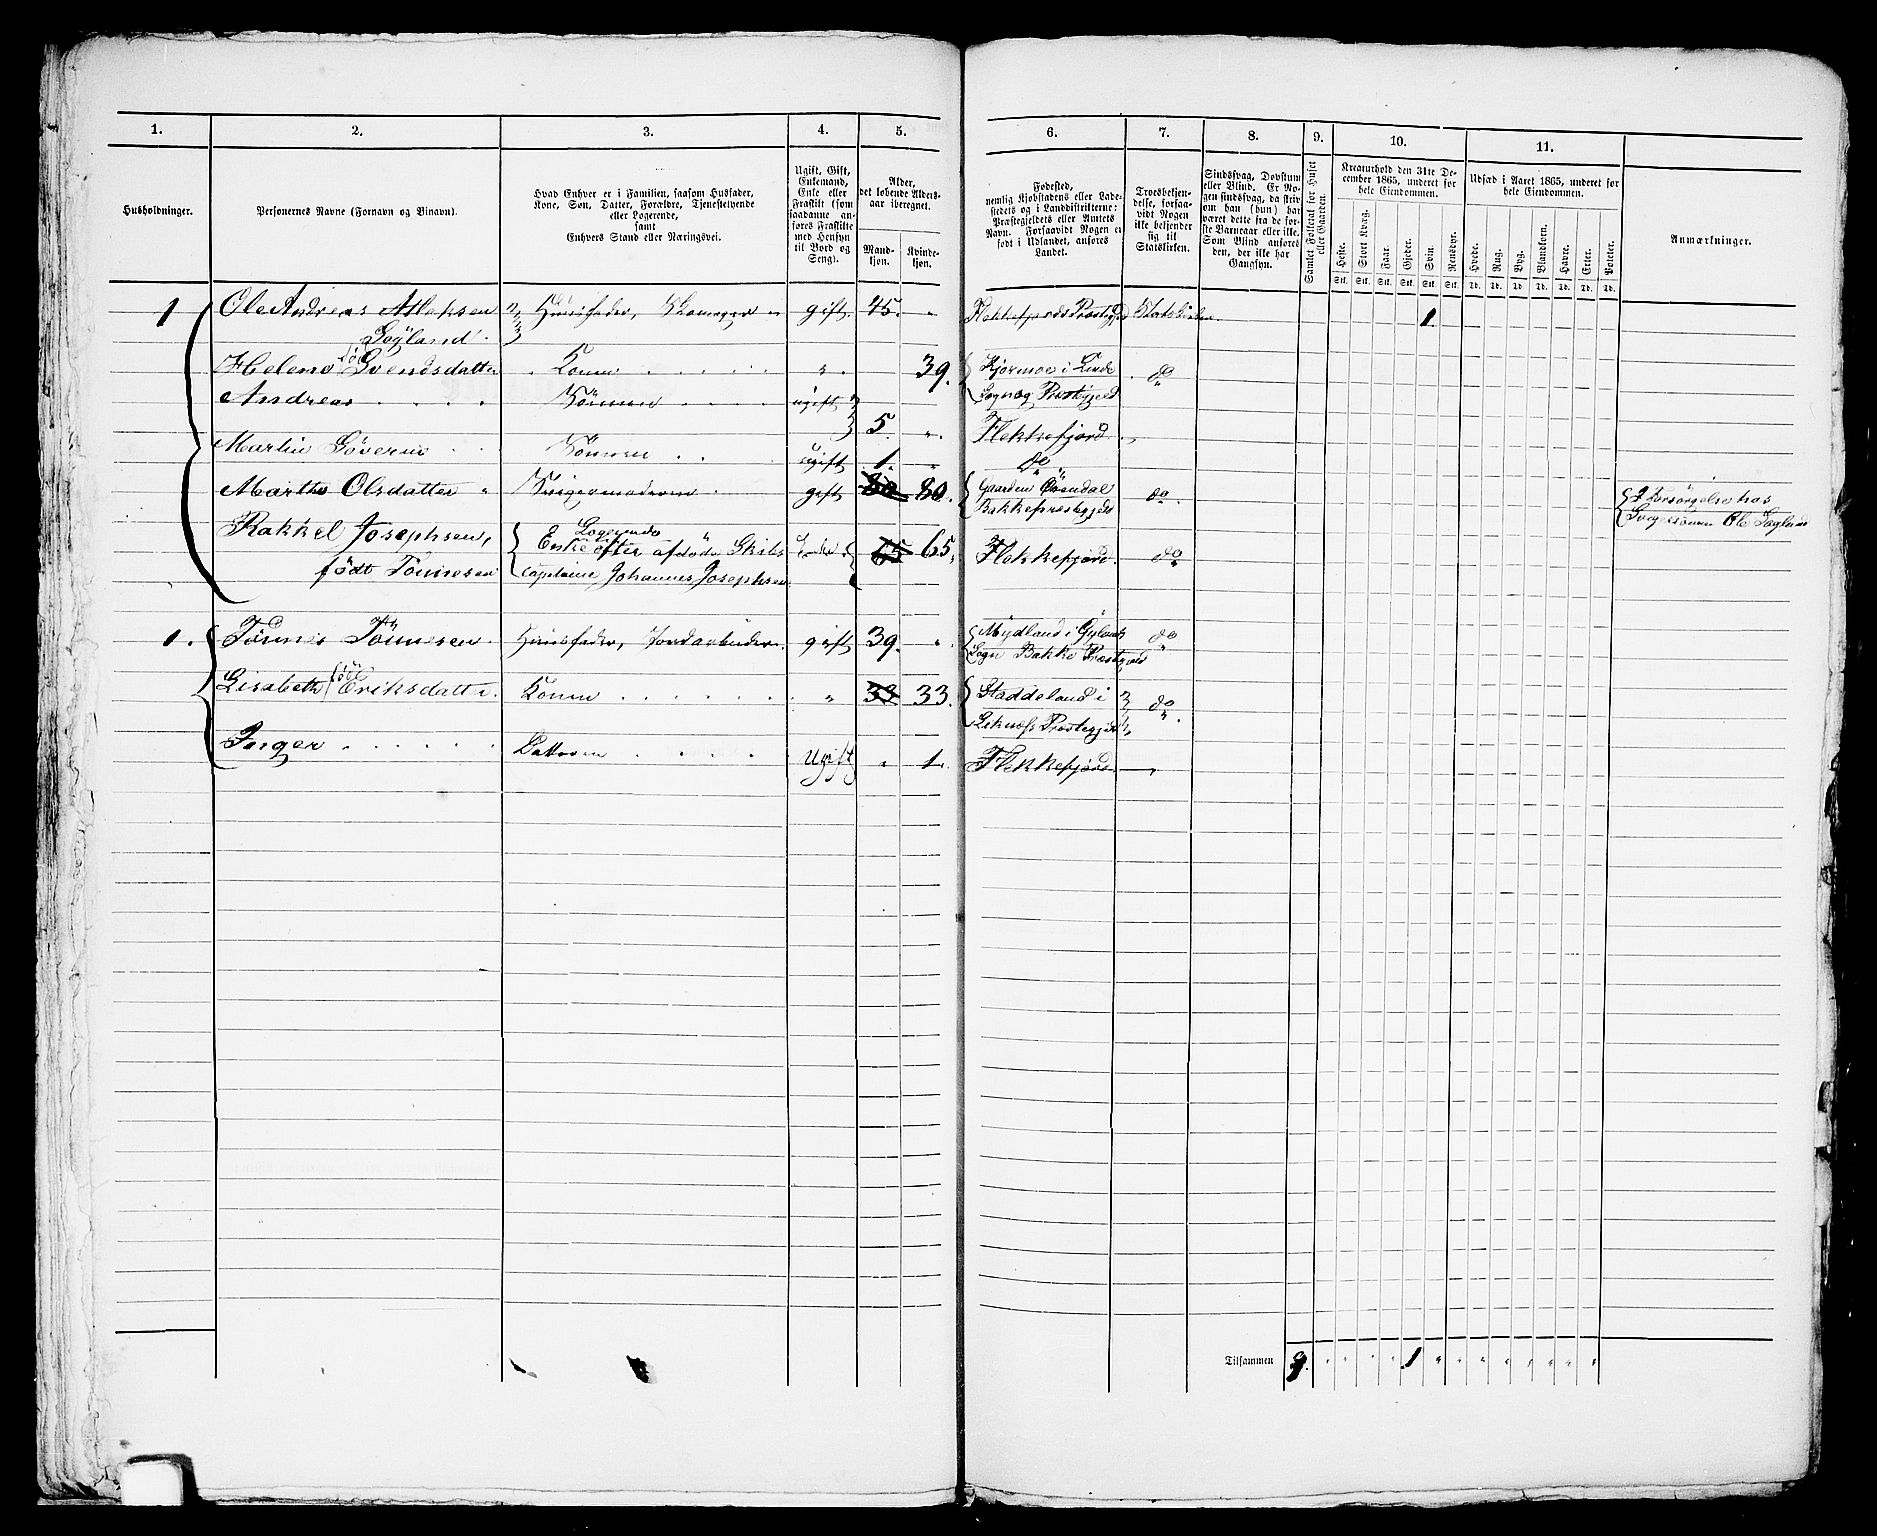 1.
2.
3.
4.
5.
6.
7.
8.
9.
10.
11.
Husholdninger.
Personernes Navne (Fornavn og Binavn).
Hvad Enhver er i Familien, saasom Husfader,
Kone, Søn, Datter, Forældre, Tjenestetyende
eller Logerende,
samt
Enhvers Stand eller Næringsvei.
Ugift, Gift,
Enkemand,
Enke eller
Fraskilt (som
saadanne an-
føres Fraskilte
med Hensyn
til Bord og
Seng).
Alder,
det løbende Alders-
aar iberegnet.
Mand-
kjøn.
Kvinde-
kjøn.
Fødested,
nemlig Kjøbstadens eller Lade-
stedets og i Landdistrikterne:
Præstegjeldets eller Amtets
Navn. Forsaavidt Nogen er
født i Udlandet, anføres
Landet.
Troesbekjen-
delse, forsaa-
vidt Nogen
ikke bekjender
sig til
Statskirken.
Sindssvag, Døvstum
eller Blind. Er No-
gen sindssvag, da skriv
om han (hun) har
været dette fra de før-
ste Barneaar eller ikke.
Som Blind anføres
den, der ikke har
Gangsyn.
Samlet Folketal for Huset
eller Gaarden.
Kreaturhold den 31te De-
cember 1865, underet for
hele Eiendommen.
Heste.
Stort Kvæg.
Faar.
Gjeder.
Svin.
Rensdyr.
Stk. Stk. Stk. Stk. Stk. Stk.
Udsæd i Aaret 1865, underet for
hele Eiendommen.
Hvede.
Rug.
Byg.
Blandkorn.
Havre.
Erter.
Poteter.
Td. Td. Td. Td. Td. Td. Td.
Anmærkninger.
1 Ole Andreas Atlaksen Huusfader, Skomager gift. 45. " Flekkefjords Præstegjeld Statskirken. 1.
Søyland.
Helene född Svendsdatter Konen " 39. Kjørmoe i Linde do
Andreas Sønnen ugift Sogn og Præstegjeld
5. " Flekkefjord
Martin Søverin Sønnen ugift 1. " do
Marthe Olsdatter Svigermoderen gift 80 80. Gaarden Öxendal do. I Forsørgelse hos
Bakkepræstegjeld Svigersønnen Ole Søyland
Rakkel Josephsen, Logerende
Enke efter afdøde Skibs Enke 65 65. Flekkefjord do
født Tönnesen Capitaine Johannes Josephsen
1. Tönnes Tönnesen Huusfader, Jordarbeider gift 39. " Mydland i Gyland do
Sogn Bakke Præstegjeld
Lisabeth född Eriksdatter Konen " 33 33. Staddeland i do
Leknæss Præstegjeld
Inger Datteren Ugift " 1. Flekkefjord
Tilsammen 9. " " " " 1 " " " " " " " "